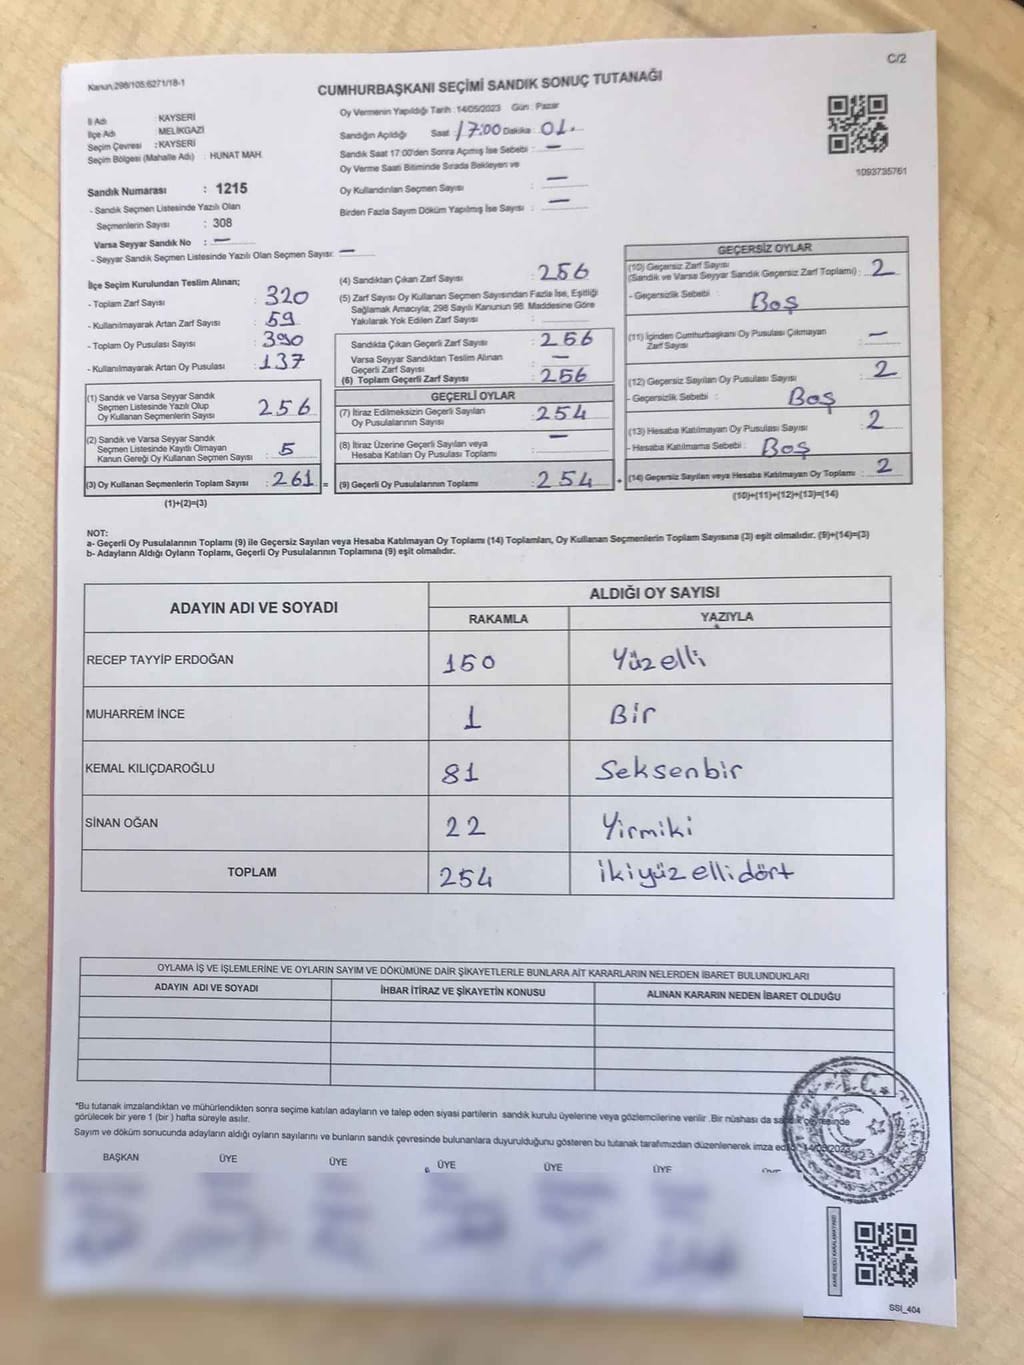 Kanun:298/105,6271/18-1
C/2
CUMHURBAŞKANI SEÇİMİ SANDIK SONUÇ TUTANAĞI
İl Adı : KAYSERİ
İlçe Adı : MELİKGAZİ
Seçim Çevresi : KAYSERİ
Seçim Bölgesi (Mahalle Adı) : HUNAT MAH.
Sandık Numarası : 1215
- Sandık Seçmen Listesinde Yazılı Olan
Seçmenlerin Sayısı : 308
Varsa Seyyar Sandık No : —
- Seyyar Sandık Seçmen Listesinde Yazılı Olan Seçmen Sayısı: —
Oy Vermenin Yapıldığı Tarih : 14/05/2023 Gün : Pazar
Sandığın Açıldığı Saat : 17:00 Dakika : 01.
Sandık Saat 17:00'den Sonra Açılmış İse Sebebi : —
Oy Verme Saati Bitiminde Sırada Bekleyen ve
Oy Kullandırılan Seçmen Sayısı : —
Birden Fazla Sayım Döküm Yapılmış İse Sayısı : —
1093735761
İlçe Seçim Kurulundan Teslim Alınan;
- Toplam Zarf Sayısı : 320
- Kullanılmayarak Artan Zarf Sayısı : 59
- Toplam Oy Pusulası Sayısı : 390
- Kullanılmayarak Artan Oy Pusulası : 137
(1) Sandık ve Varsa Seyyar Sandık
Seçmen Listesinde Yazılı Olup
Oy Kullanan Seçmenlerin Sayısı : 256
(2) Sandık ve Varsa Seyyar Sandık
Seçmen Listesinde Kayıtlı Olmayan
Kanun Gereği Oy Kullanan Seçmen Sayısı : 5
(3) Oy Kullanan Seçmenlerin Toplam Sayısı : 261 =
(1)+(2)=(3)
(4) Sandıktan Çıkan Zarf Sayısı : 256
(5) Zarf Sayısı Oy Kullanan Seçmen Sayısından Fazla İse, Eşitliği
Sağlamak Amacıyla; 298 Sayılı Kanunun 98. Maddesine Göre
Yakılarak Yok Edilen Zarf Sayısı :
Sandıkta Çıkan Geçerli Zarf Sayısı : 256
Varsa Seyyar Sandıktan Teslim Alınan
Geçerli Zarf Sayısı : —
(6) Toplam Geçerli Zarf Sayısı : 256
GEÇERLİ OYLAR
(7) İtiraz Edilmeksizin Geçerli Sayılan
Oy Pusulalarının Sayısı : 254
(8) İtiraz Üzerine Geçerli Sayılan veya
Hesaba Katılan Oy Pusulası Toplamı : —
(9) Geçerli Oy Pusulalarının Toplamı : 254 +
GEÇERSİZ OYLAR
(10) Geçersiz Zarf Sayısı
(Sandık ve Varsa Seyyar Sandık Geçersiz Zarf Toplamı) : 2
- Geçersizlik Sebebi : Boş
(11) İçinden Cumhurbaşkanı Oy Pusulası Çıkmayan
Zarf Sayısı : —
(12) Geçersiz Sayılan Oy Pusulası Sayısı : 2
- Geçersizlik Sebebi : Boş
(13) Hesaba Katılmayan Oy Pusulası Sayısı : 2
- Hesaba Katılmama Sebebi : Boş
(14) Geçersiz Sayılan veya Hesaba Katılmayan Oy Toplamı : 2
(10)+(11)+(12)+(13)=(14)
NOT:
a- Geçerli Oy Pusulalarının Toplamı (9) ile Geçersiz Sayılan veya Hesaba Katılmayan Oy Toplamı (14) Toplamları, Oy Kullanan Seçmenlerin Toplam Sayısına (3) eşit olmalıdır. (9)+(14)=(3)
b- Adayların Aldığı Oyların Toplamı, Geçerli Oy Pusulalarının Toplamına (9) eşit olmalıdır.
ADAYIN ADI VE SOYADI
ALDIĞI OY SAYISI
RAKAMLA YAZIYLA
RECEP TAYYİP ERDOĞAN 150 Yüzelli
MUHARREM İNCE 1 Bir
KEMAL KILIÇDAROĞLU 81 Seksenbir
SİNAN OĞAN 22 Yirmiki
TOPLAM 254 ikiyüzellidört
OYLAMA İŞ VE İŞLEMLERİNE VE OYLARIN SAYIM VE DÖKÜMÜNE DAİR ŞİKAYETLERLE BUNLARA AİT KARARLARIN NELERDEN İBARET BULUNDUKLARI
ADAYIN ADI VE SOYADI İHBAR İTİRAZ VE ŞİKAYETİN KONUSU ALINAN KARARIN NEDEN İBARET OLDUĞU
*Bu tutanak imzalandıktan ve mühürlendikten sonra seçime katılan adayların ve talep eden siyasi partilerin sandık kurulu üyelerine veya gözlemcilerine verilir. Bir nüshası da sandık çevresinde
görülecek bir yere 1 (bir) hafta süreyle asılır.
Sayım ve döküm sonucunda adayların aldığı oyların sayılarını ve bunların sandık çevresinde bulunanlara duyurulduğunu gösteren bu tutanak tarafımızdan düzenlenerek imza
BAŞKAN ÜYE ÜYE ÜYE ÜYE ÜYE ÜYE
T.C.
SSI_404